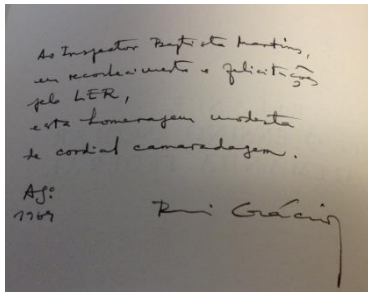 Ao Inspector Baptista Martins,
em reconhecimento e felicitações
pelo LER,
esta homenagem modesta
de cordial camaradagem.
Agº
1969
Rui Grácio